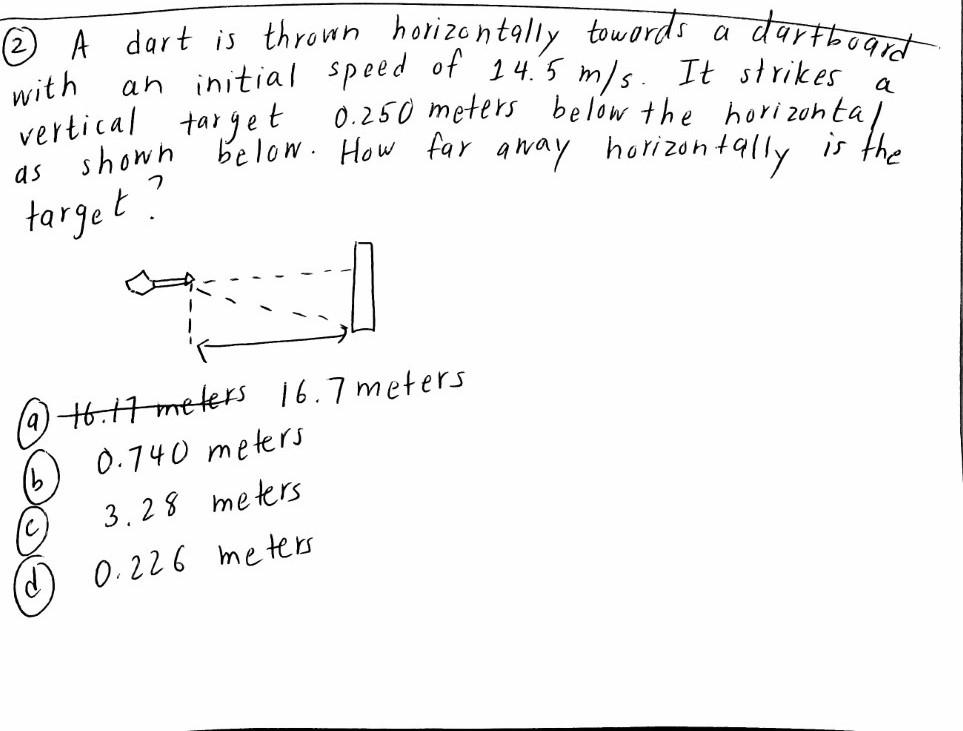 ② A dart is thrown horizontally towards a dartboard
with an initial speed of 14.5 m/s. It strikes a
vertical target 0.250 meters below the horizontal
as shown below. How far away horizontally is the
target?
ⓐ 16.17 meters 16.7 meters
ⓑ 0.740 meters
ⓒ 3.28 meters
ⓓ 0.226 meters